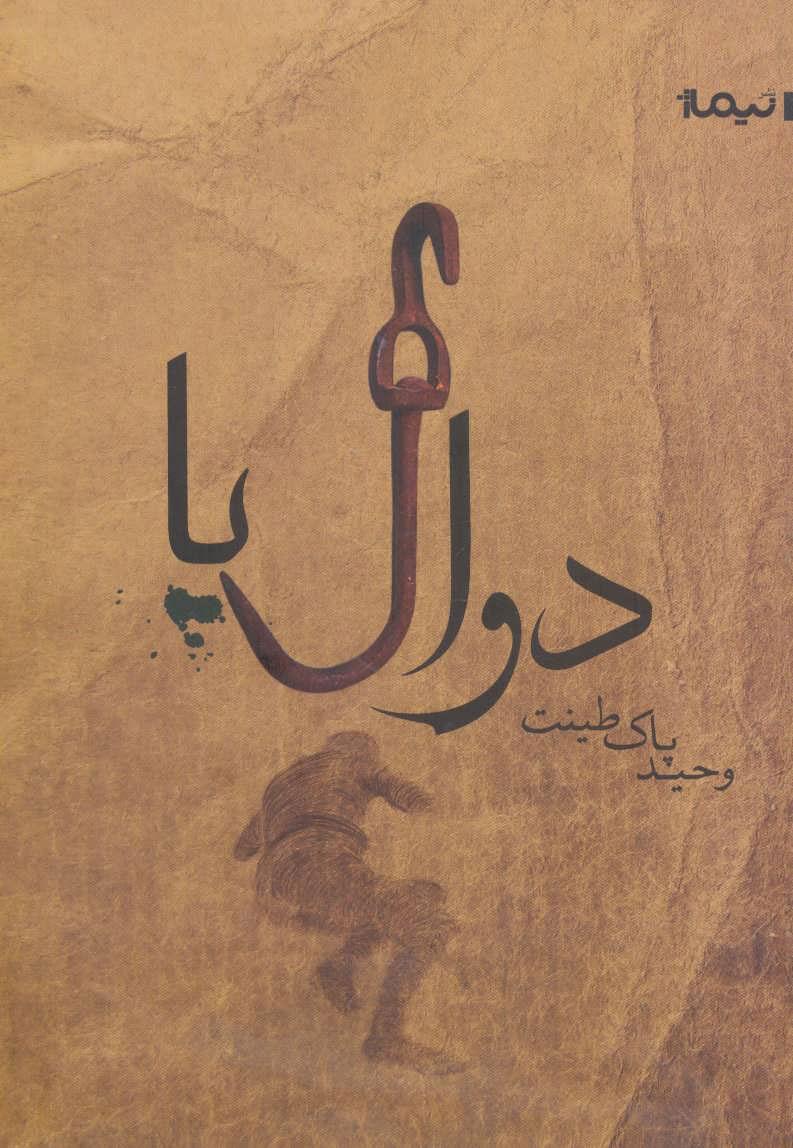 نشر
نیماژ
دوال پا
وحید
پاک طینت